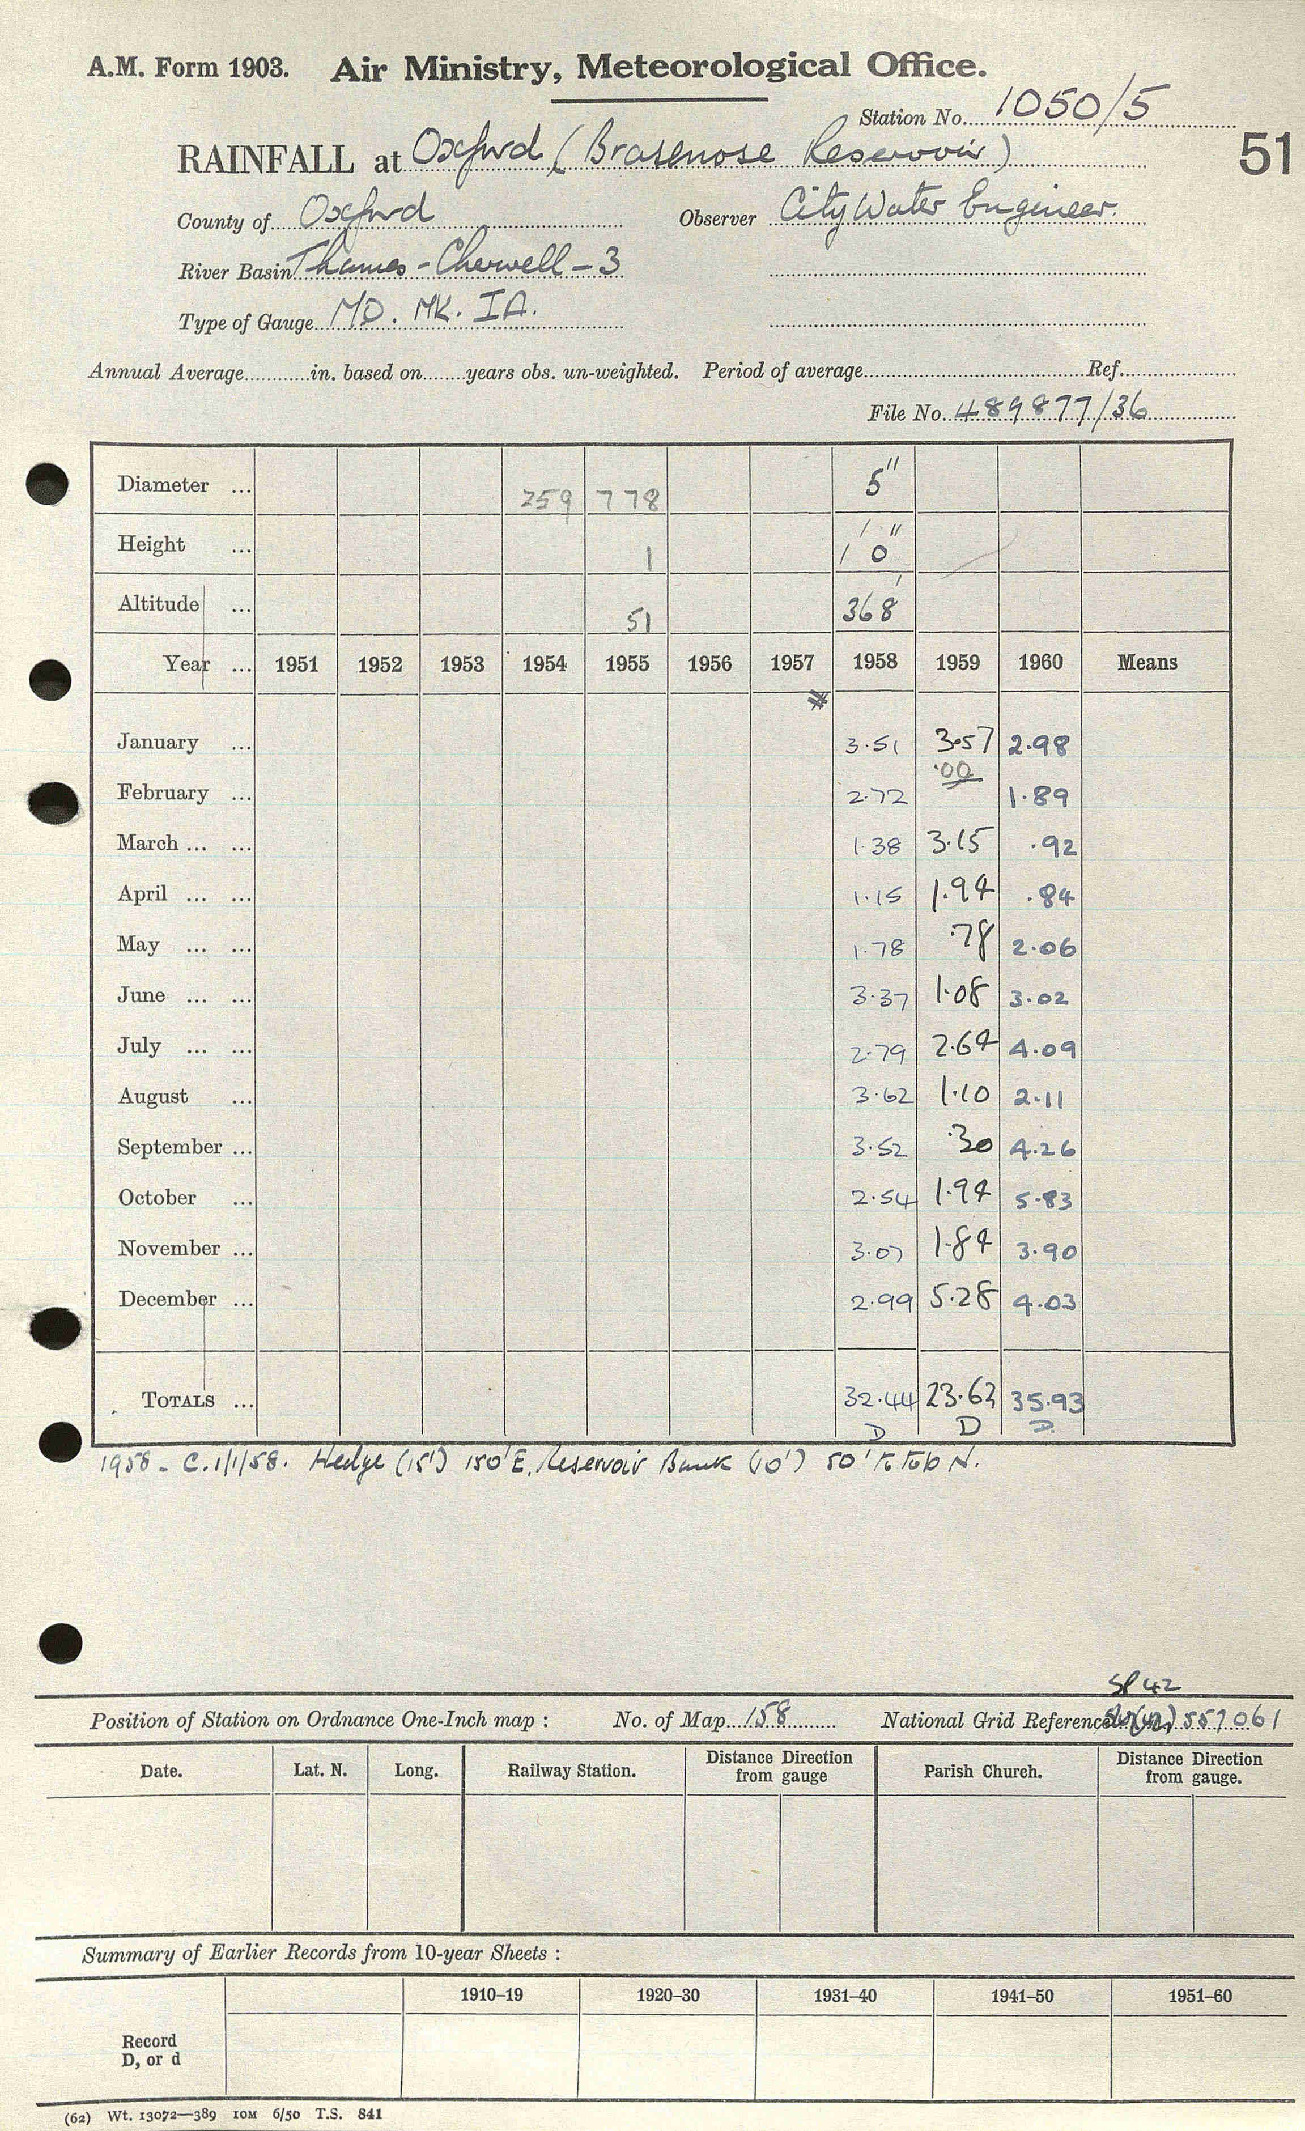 A.M. Form 1903. Air Ministry, Meteorological Office.
Station No. 1050/5
RAINFALL at Oxford (Brasenose Reservoir)
51
County of Oxford Observer City Water Engineer.
River Basin Thames - Cherwell - 3
Type of Gauge MO. MK. IA.
Annual Average in. based on years obs. un-weighted. Period of average Ref.
File No. 489877/36
Diameter ... 259 778 5"
Height ... 1 1' 0"
Altitude ... 51 368'
Year ... 1951 1952 1953 1954 1955 1956 1957 1958 1959 1960 Means
January ... 3.51 3.57 2.98
February ... 2.72 .00 1.89
March ... ... 1.38 3.15 .92
April ... ... 1.15 1.94 .84
May ... ... 1.78 .78 2.06
June ... ... 3.37 1.08 3.02
July ... ... 2.79 2.64 4.09
August ... 3.62 1.10 2.11
September ... 3.52 .30 4.26
October ... 2.54 1.94 5.83
November ... 3.07 1.84 3.90
December ... 2.99 5.28 4.03
TOTALS ... 32.44 23.62 35.93
D D D
1958 - C.1/1/58. Hedge (15') 150' E. Reservoir Bank (10') 50' N.
SP 42
Position of Station on Ordnance One-Inch map : No. of Map 158 National Grid Reference 557061
Date. Lat. N. Long. Railway Station. Distance Direction from gauge Parish Church. Distance Direction from gauge.
Summary of Earlier Records from 10-year Sheets :
1910–19 1920–30 1931–40 1941–50 1951–60
Record
D, or d
(62) Wt. 13072—389 10M 6/50 T.S. 841